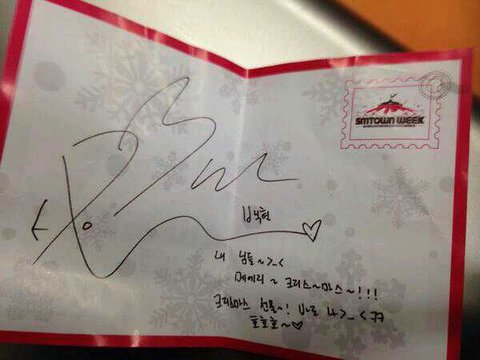 SMTOWN WEEK
백현
내 님들~>_<
메에리~ 크리스~마스~!!!
선물~! 바로 나>_< ㅋㅋ
호호호~♡